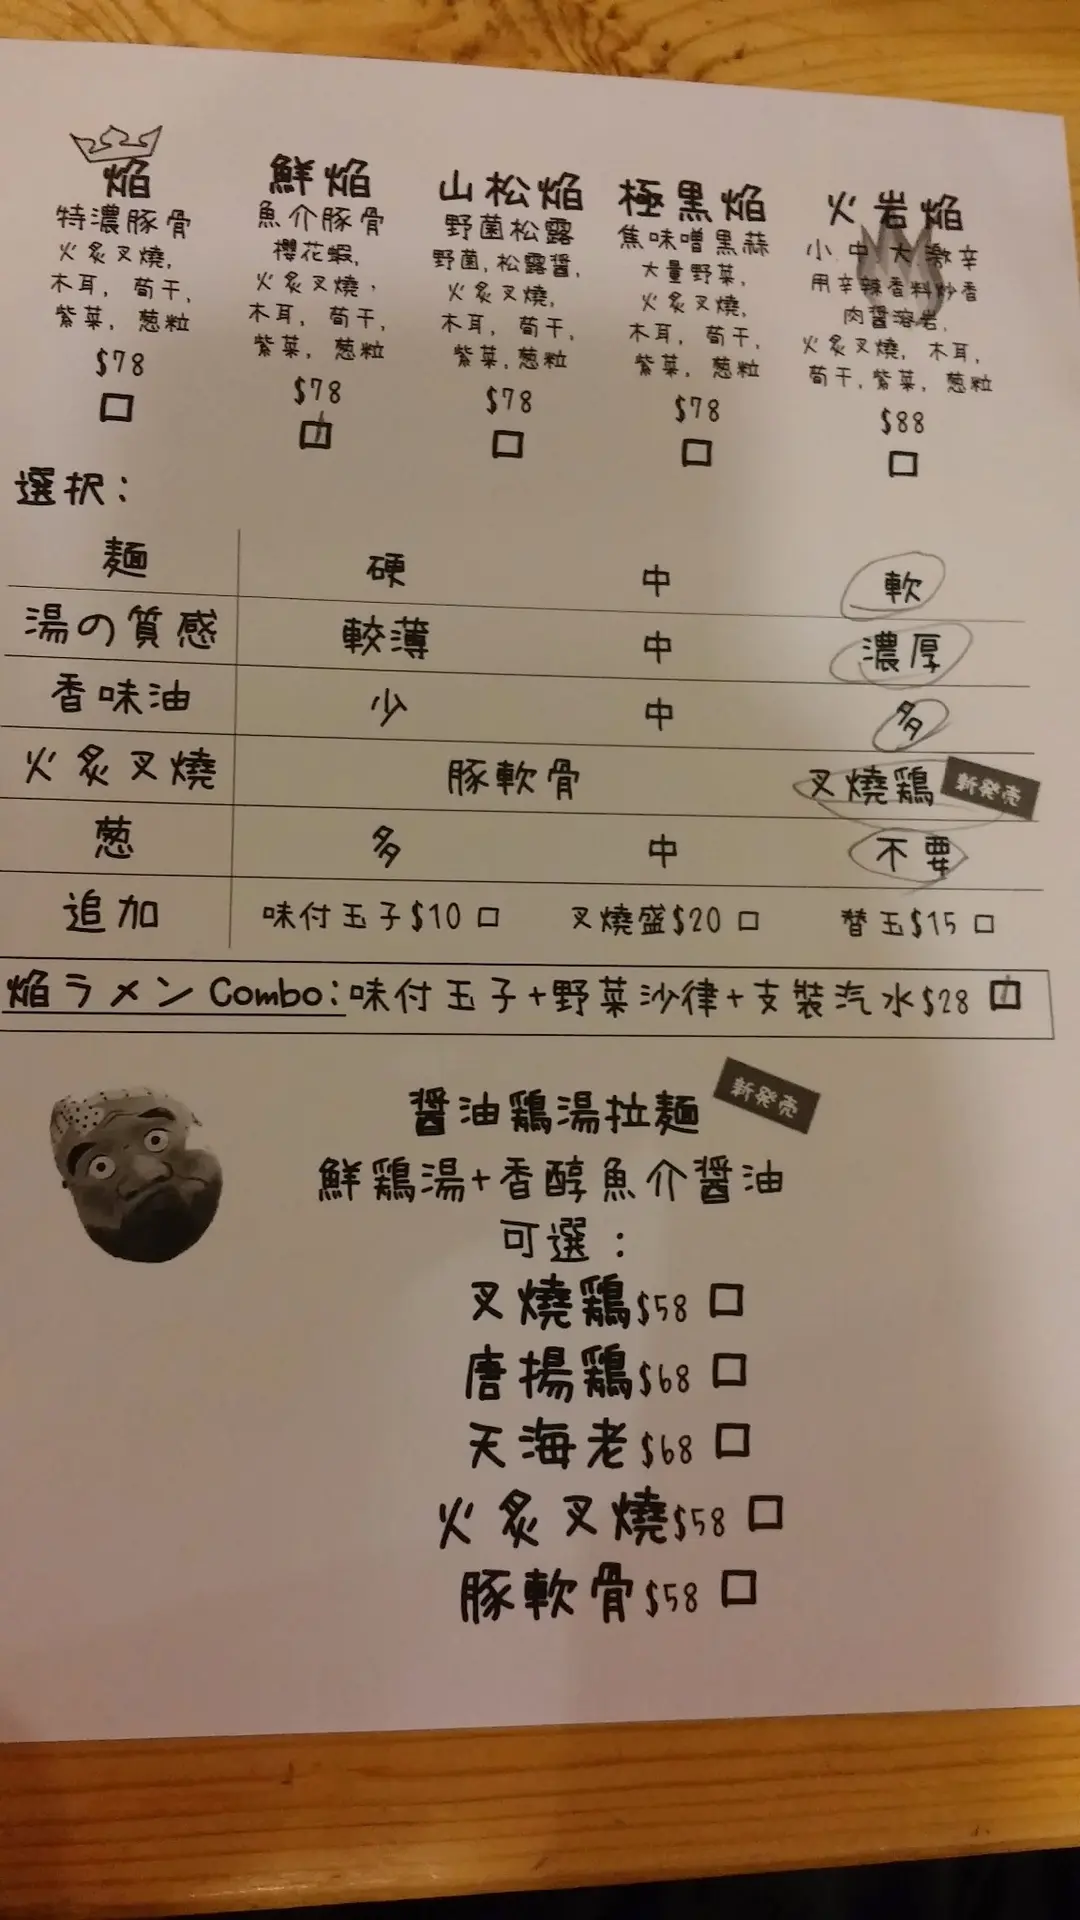 焔
特濃豚骨
火炙叉燒,
木耳, 荀干,
紫菜, 葱粒
$78
鮮焔
魚介豚骨
櫻花蝦,
火炙叉燒,
木耳, 荀干,
紫菜, 葱粒
$78
山松焔
野菌松露
野菌, 松露醤,
火炙叉燒,
木耳, 荀干,
紫菜, 葱粒
$78
極黒焔
焦味噌黒蒜
大量野菜,
火炙叉燒,
木耳, 荀干,
紫菜, 葱粒
$78
火岩焔
小 中 大 激辛
用辛辣香料炒香
肉醤溶岩,
火炙叉燒, 木耳,
荀干, 紫菜, 葱粒
$88
選択:
麺 硬 中 軟
湯の質感 較薄 中 濃厚
香味油 少 中 多
火炙叉燒 豚軟骨 叉燒鶏 新発売
葱 多 中 不要
追加 味付玉子$10 叉燒盛$20 替玉$15
焔ラメン Combo:味付玉子+野菜沙律+支裝汽水$28
醤油鶏湯拉麺 新発売
鮮鶏湯+香醇魚介醤油
可選:
叉燒鶏$58
唐揚鶏$68
天海老$68
火炙叉燒$58
豚軟骨$58